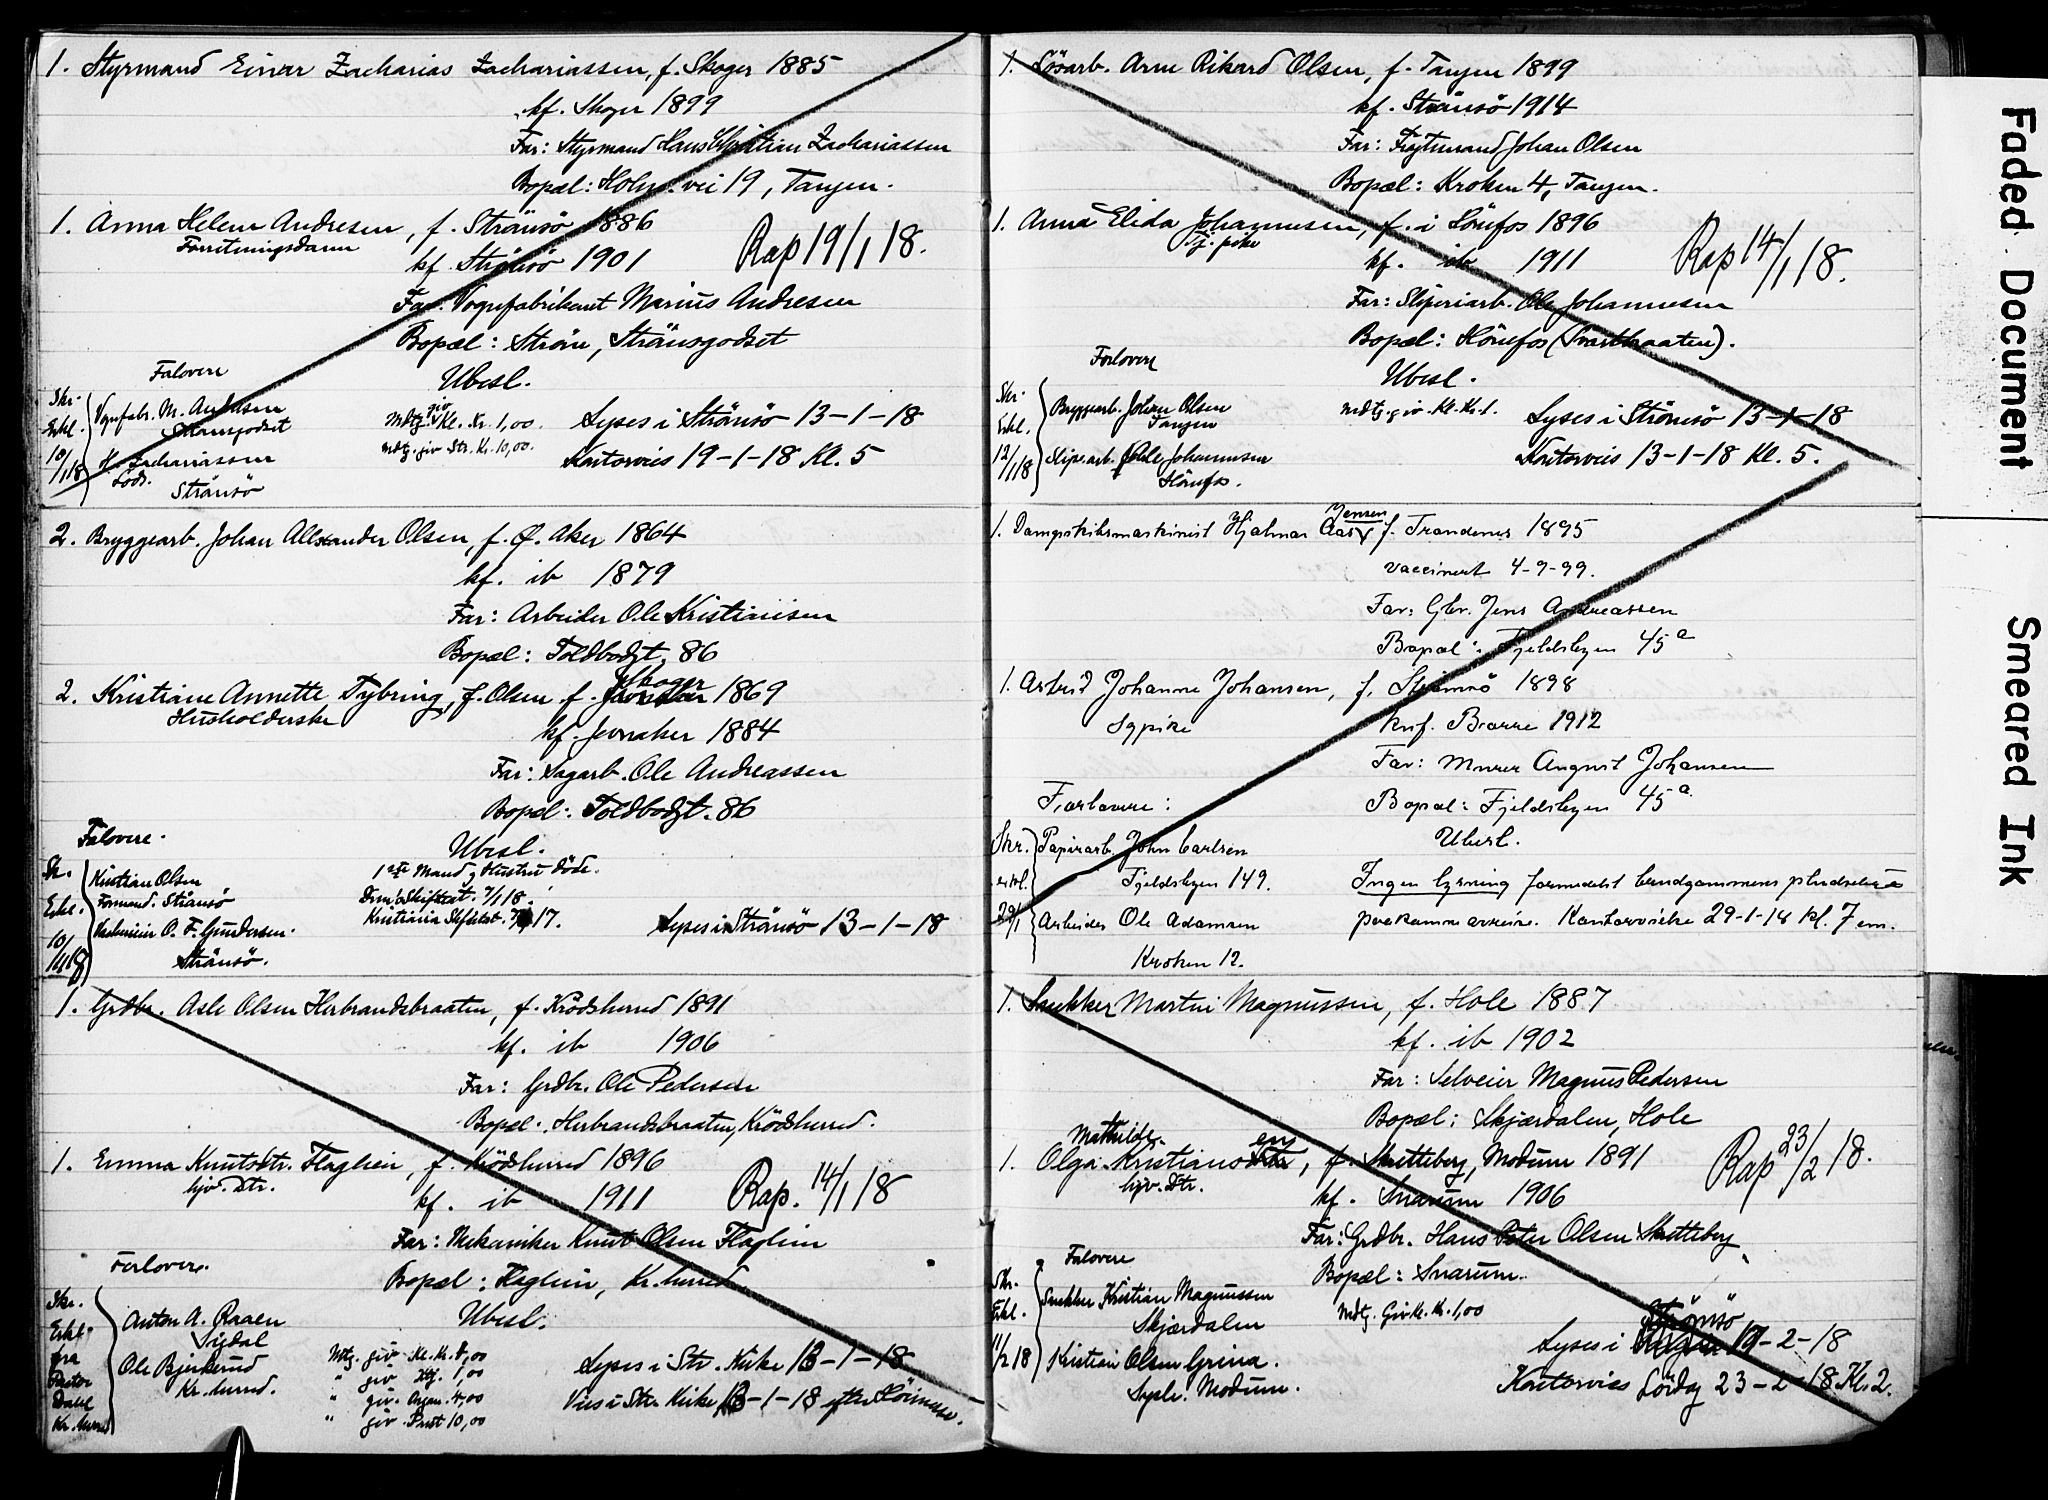 1. Styrmand Einar Zacharias Zachariassen, f. Skoger 1885
kf. Skoger 1899
Far: Styrmand Hans Christian Zachariassen
Bopæl: Holm. vei 19, Tangen.
1. Anna Helene Andresen, f. Strömsö 1886
Forretningsdame
kf. Strömsö 1901
Rap 19/1 18.
Far: Vognfabrikant Marius Andresen
Bopæl: Ström, Strömsgodset
Forlovere
Ubesl.
Skr. Erkl. 10/1 18
Vognfabr. M. Andresen
Strömsgodset
H. Zachariassen
Lods. Strömsö
Mdtg. giv Kl. Kr. 1,00.
Mdtg. giv Str. Kr. 10,00.
Lyses i Strömsö 13-1-18
Kontorvies 19-1-18 Kl. 5
2. Bryggearb. Johan Alexander Olsen, f. Ø. Aker 1864
kf. ib 1879
Far: Arbeider Ole Kristiansen
Bopæl: Toldbodgt. 86
2. Kristiane Annette Tybring, f. Olsen f. Skoger 1869
Husholderske
kf. Jevnaker 1884
Far: Sagarb. Ole Andreassen
Bopæl: Toldbodgt. 86
Forlovere.
Ubesl.
Skr. Erkl. 10/1 18
Kristian Olsen
Formand. Strömsö
O. F. Gundersen.
Strömsö.
1ste Mand og Hustru döde.
Dr.ns Skiftest. 7/1 18.
Kristiania Skfetst. 17.
Lyses i Strömsö 13-1-18
1. Grdbr. Asle Olsen Herbrandsbraaten, f. Krödsherred 1891
kf. ib 1906
Far: Grdbr. Ole Pedersen
Bopæl. Herbrandsbraaten, Krödsherred.
1. Emma Knutsdtr. Flaglien, f. Krödsherred 1896
hjv. Dtr.
kf. ib 1911
Rap. 14/1 18
Far: Mekaniker Knut Olsen Flaglien
Forlovere.
Bopæl: Flaglien, Kr.herred
Ubesl.
Skr. Erkl. fra Pastor Dahl Kr. herred
Anton A. Raaen
Sigdal
Ole Bjerkerud
Kr. herred.
Mtg. giv. Kl. Kr. 1,00
" giv 1,00
" giv. Organ. 4,00
" giv. Prest 10,00
Lyses i Str. Kirke 13-1-18
Vies i Str. Kirke 13-1-18 efter Höimesse.
1. Lösarb. Arne Rikard Olsen, f. Tangen 1899
kf. Strömsö 1914
Far: Fragtemand Johan Olsen
Bopæl: Kroken 4, Tangen.
1. Anna Elida Johannesen, f. i Hönefos 1896
Tj. pike
kf. ib 1911
Rap 14/1 18.
Far: Sliperiarb. Ole Johannesen
Bopæl: Hönefos (Svartbraaten).
Forlovere
Ubesl.
Skr. Erkl. 12/1 18
Bryggearb. Johan Olsen
Tangen
Slipe.arb. Ole Johannesen
Hönefos.
Mdtg. giv. Kl. Kr. 1.
Lyses i Strömsö 13-1-18
Kontorvies 13-1-18 Kl. 5.
1. Dampskibsmaskinist Hjalmar Aas Jensen f. Trandenes 1895
vaccinert 4-9-99.
Far: Gbr. Jens Andreassen
Bopæl: Fjeldsbyen 45a
1. Astrid Johanne Johansen, f. Strömsö 1898
Sypike
knf. Borre 1912
Far: Murer August Johansen
Forlovere:
Bopæl: Fjeldsbyen 45a
Ubesl.
Skr. erkl. 29/1
Papirarb. John Carlsen
Fjeldsbyen 149.
Arbeider Ole Adamsen
Kroken 12.
Ingen lysning formedelst brudgommens pludselige
paakomne avreise. Kontorvielse 29-1-18 kl. 7 em.
1. Snekker Martin Magnussen, f. Hole 1887
kf. ib 1902
Far: Selveier Magnus Pedersen
Bopæl: Skjærdalen, Hole
1. Olga Mathilde Kristiansen, f. Skretteberg, Modum 1891
hjv. Dtr.
kf. Snarum 1906
Rap 23/2 18.
Far: Grdbr. Hans Peter Olsen Skretteberg
Forlovere
Bopæl: Snarum.
Skr. Erkl. 11/2 18
Snekker Kristian Magnussen
Skjærdalen
Kristian Olsen Grina.
Sysle. Modum.
Mdtg. Giv Kl. Kr. 1,00
Lyses i Strömsö 17-2-18
Kontorvies Lördag 23-2-18 Kl. 2.
Faded Document
Smeared Ink